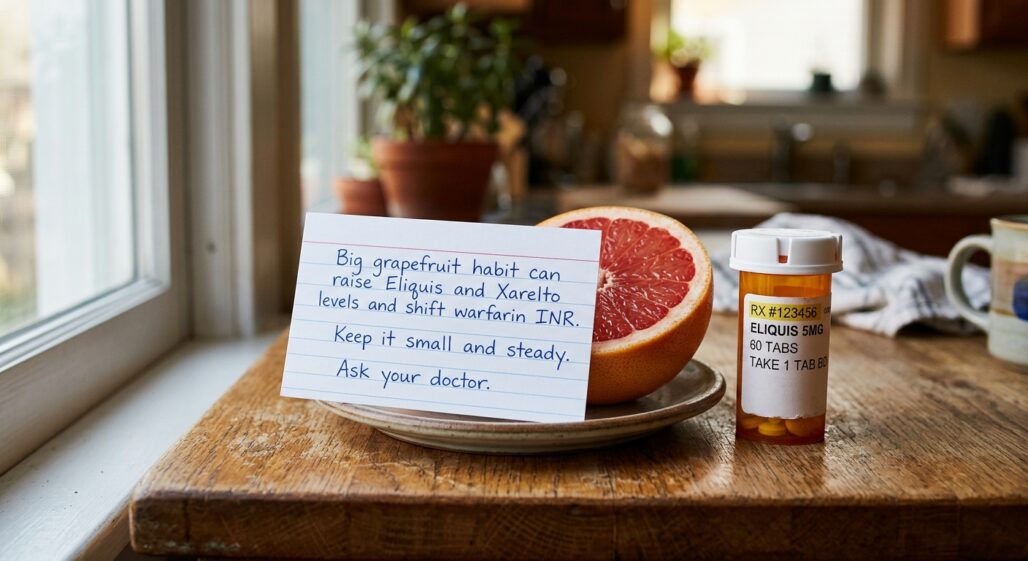 Big grapefruit habit can
raise Eliquis and Xarelto
levels and shift warfarin INR.
Keep it small and steady.
Ask your doctor.
RX #123456
ELIQUIS 5MG
60 TABS
TAKE 1 TAB